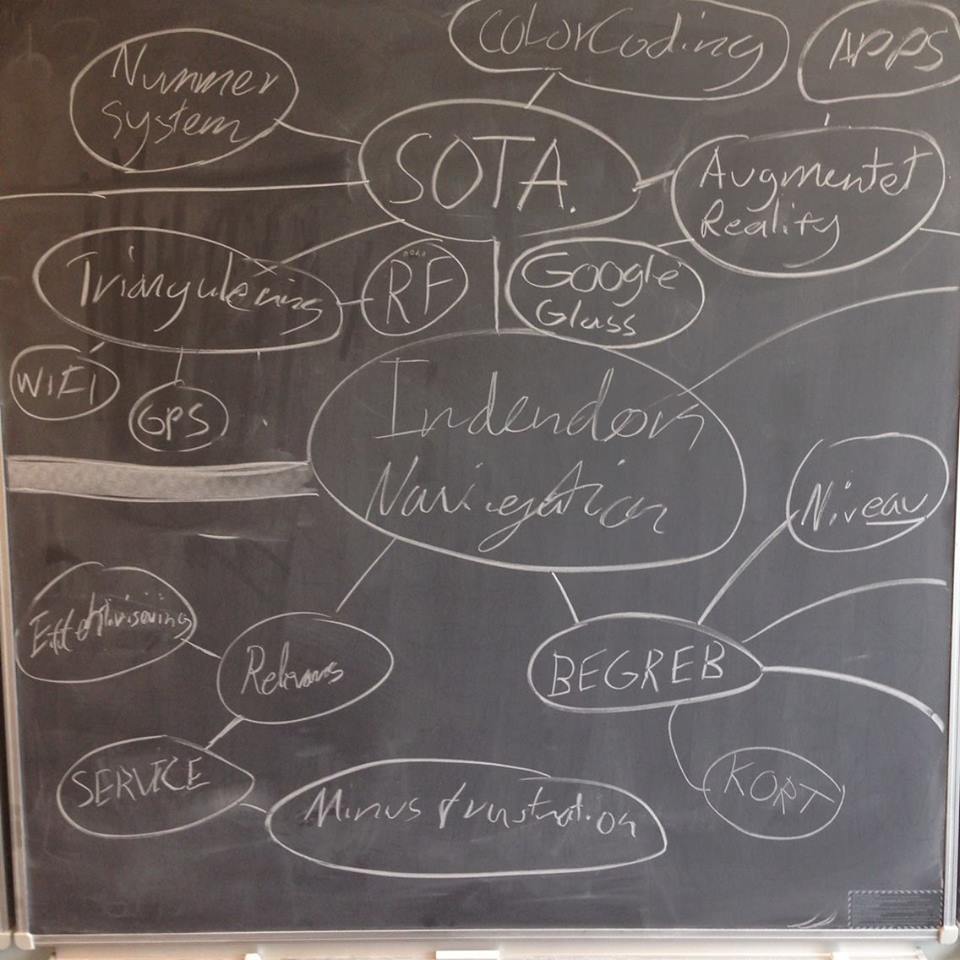 ColorCoding
APPS
Nummer
system
SOTA.
Augmentet
Reality
Triangulering
RF
Google
Glass
WIFI
GPS
Indendørs
Navigation
Niveau
Effektivisering
Relevans
BEGREB
SERVICE
Minus frustration
KORT